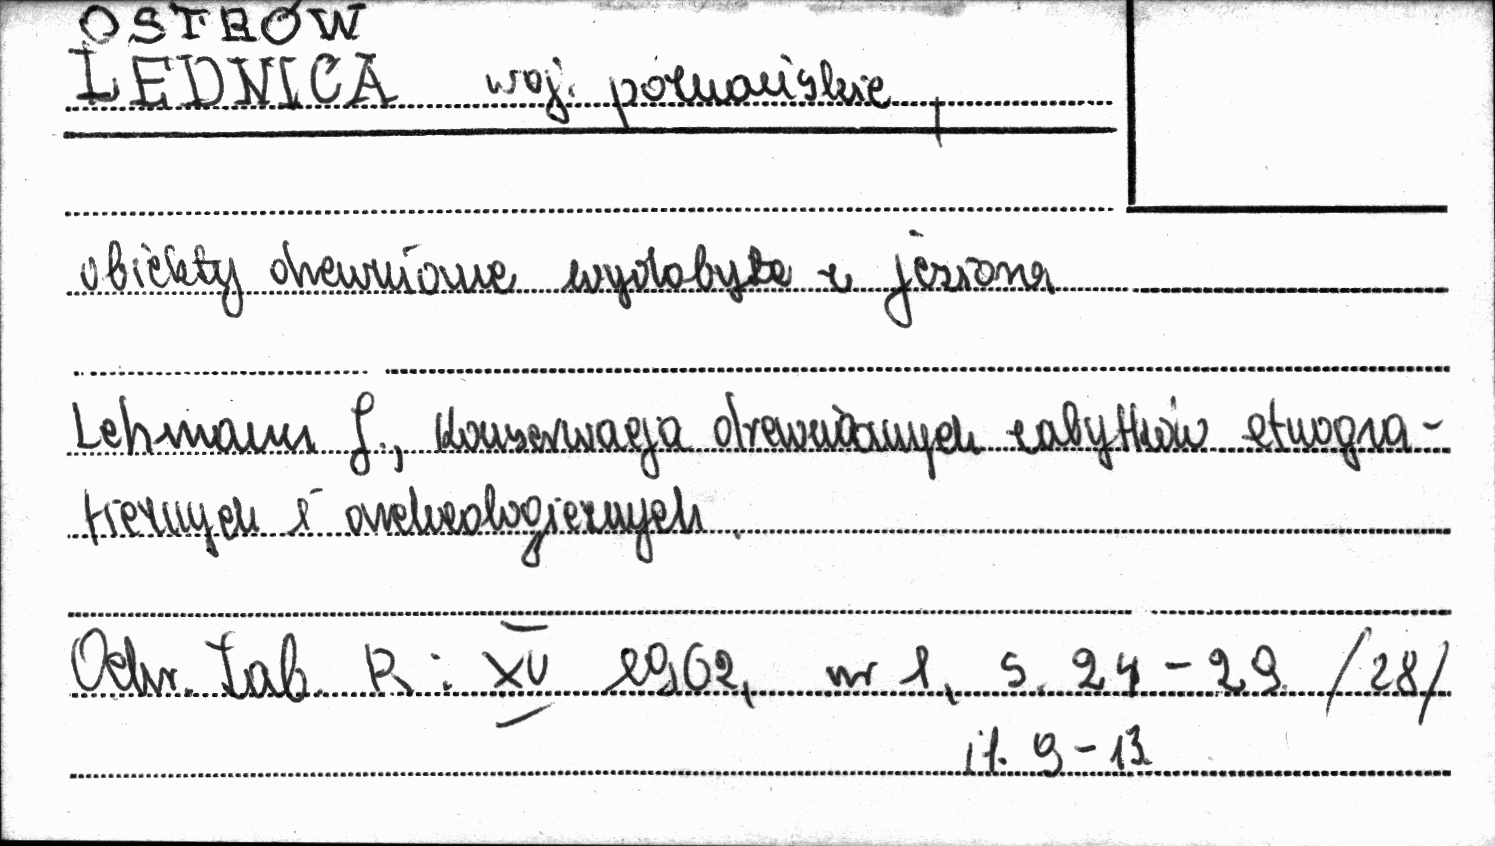 OSTRÓW
LEDNICA woj. poznańskie,
obiekty drewniane wydobyte z jeziora
Lehmann J., Konserwacja drewnianych zabytków etnogra-
ficznych i archeologicznych.
Ochr. Zab. R: XV 1962, nr 1, s. 24-29 /28/
il. 9-13